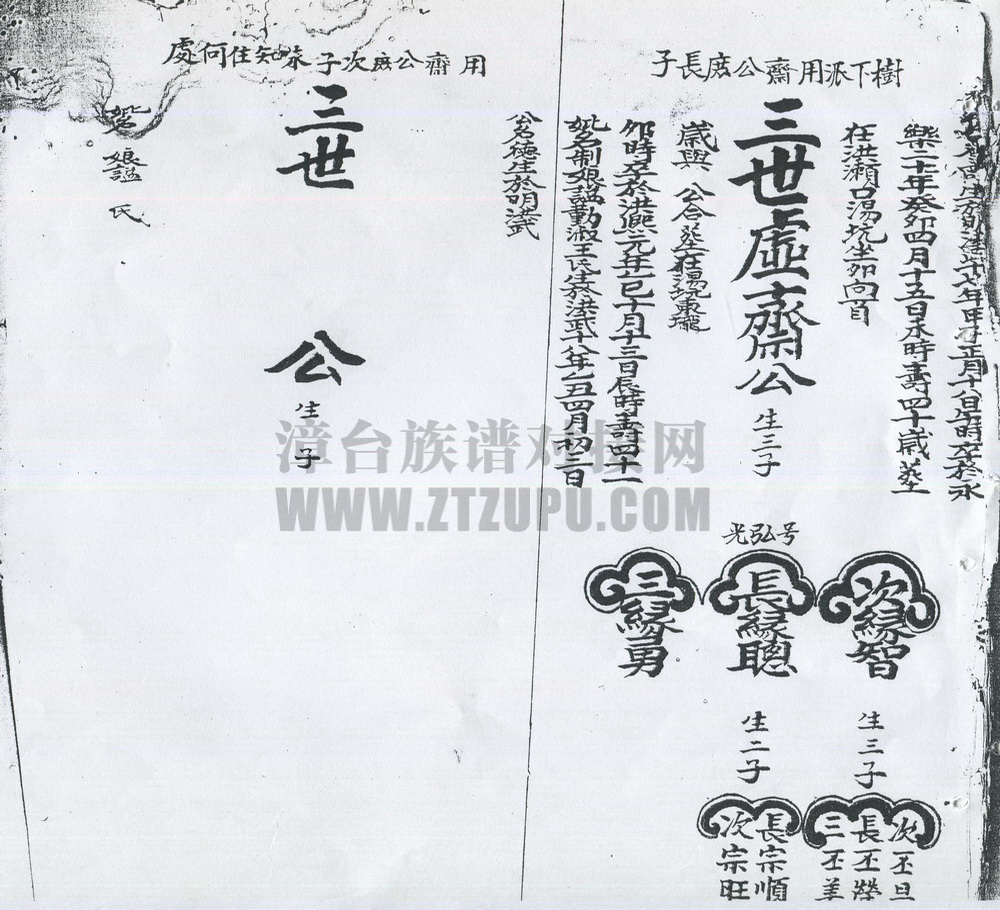 樹下派用齋公庶長子
年甲子正月十八日午時卒於永
樂二十年癸卯四月十五日未時壽四十歲塟
在洪瀨口湯坑坐夘向酉
三世虛齋公
生三子
妣名制娘諡勤淑王氏生於洪武十八年乙丑四月初二日
夘時卒於洪熙元年乙巳十月十三日辰時壽四十一
歲與 公合塟在湯坑東瓏
号弘光
次緣智
長緣聰
三緣勇
生三子
生二子
次丕旦
長丕榮
三丕美
長宗順
次宗旺
用齋公庶次子未知住何處
公名德生於明洪武
三世 公
生 子
妣名 娘諡 氏
漳台族谱对接网
WWW.ZTZUPU.COM